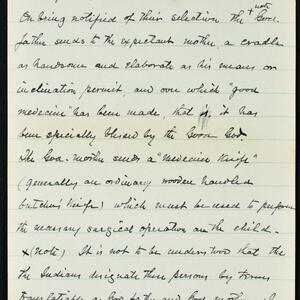 note
On being notified of their selection the + God-
father sends to the expectant mother, a cradle
as handsome and elaborate as his means or
inclination, permit, and over which "good
medicine" has been made, that is, it has
been specially blessed by the Good God
The God-mother sends a "Medicine Knife"
(generally an ordinary wooden handled
butcher Knife) which must be used to perform
the necessary surgical operation on the child.
x (note) It is not to be understood that the
the Indians designate these persons by terms
translatable as God father and God mother.